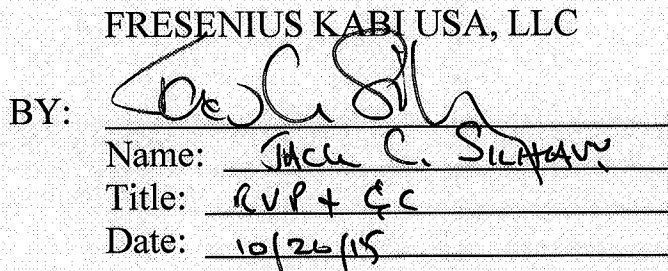 FRESENIUS KABI USA, LLC
BY:
Name: Jack C. Silhavy
Title: RVP + GC
Date: 10/26/15